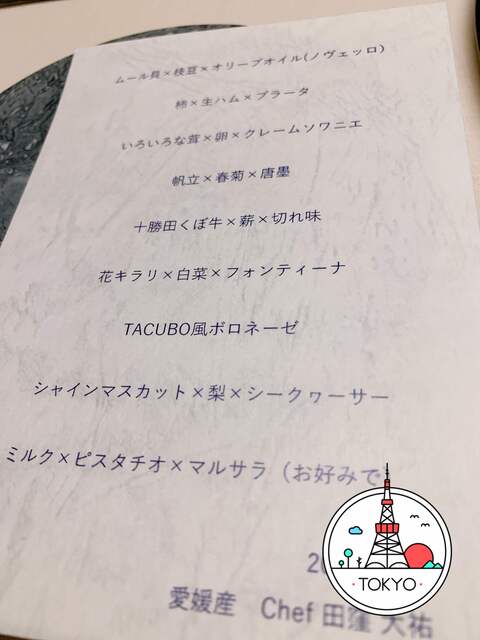 ムール貝×枝豆×オリーブオイル(ノヴェッロ)
柿×生ハム×ブラータ
いろいろな茸×卵×クレームソワニエ
帆立×春菊×唐墨
十勝田くぼ牛×薪×切れ味
花キラリ×白菜×フォンティーナ
TACUBO風ボロネーゼ
シャインマスカット×梨×シークヮーサー
ミルク×ピスタチオ×マルサラ（お好みで
愛媛産 Chef 田窪 大祐
TOKYO